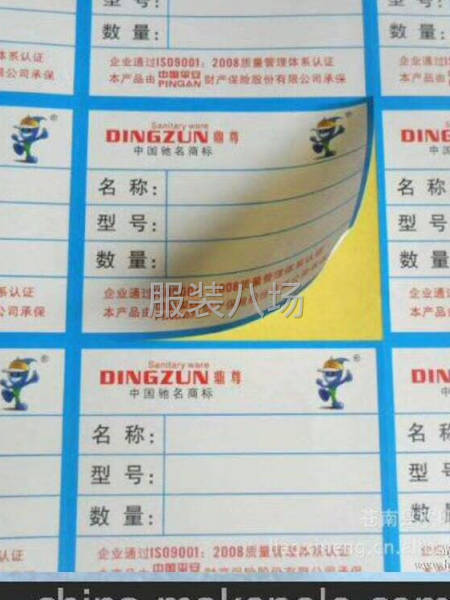 型号:
数量:
企业通过ISO9001：2008质量管理体系认证
体系认证
本产品由 中国平安 PINGAN 财产保险股份有限公司承保
有限公司承保
企业通
本产品
Sanitary ware
DINGZUN 鼎尊
®
中国驰名商标
DINGZ
名称:
型号:
数量:
企业通过ISO9001：2008质量管理体系认证
本产品由
限公司承保
体系认证
公司承保
企业通过
本产品由
服装八场
Sanitary ware
DINGZUN 鼎尊
®
中国驰名商标
DINGZU
名称:
型号:
数量:
企业通过ISO9001：2008质量管理体系认证
中国平安
财产保险股份有限公司承保
系认证
公司承保
企业通过
苍南县